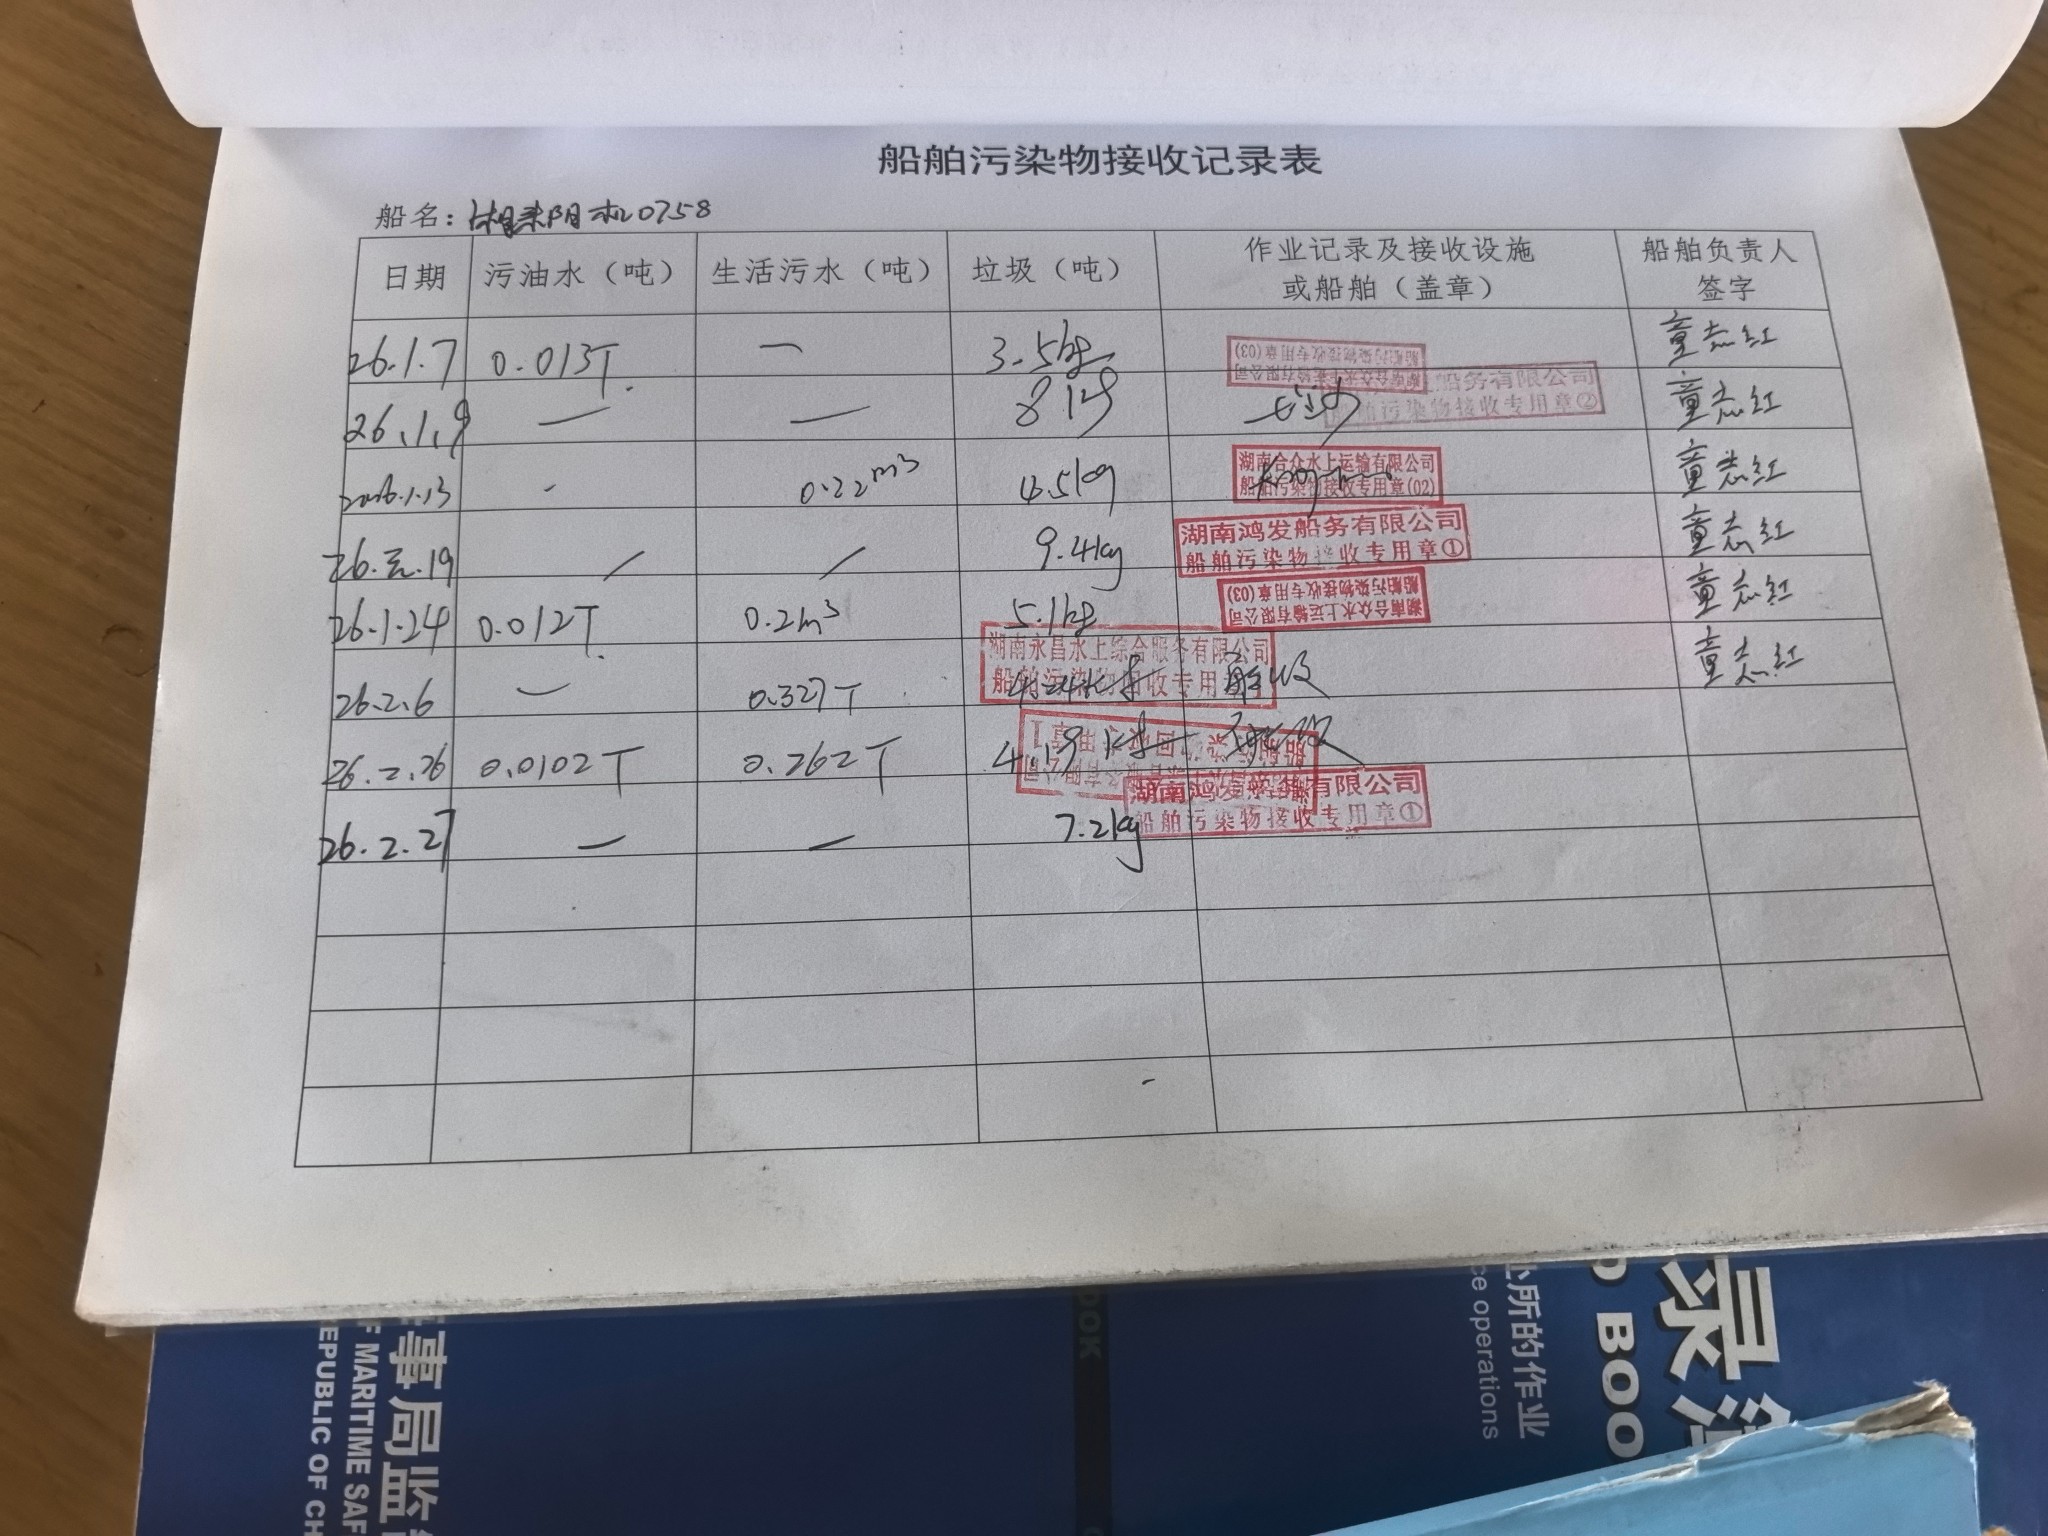 船舶污染物接收记录表
船名：湘耒阳机0758
日期 污油水（吨） 生活污水（吨） 垃圾（吨） 作业记录及接收设施或船舶（盖章） 船舶负责人签字
26.1.7 0.013T. — 3.5kg 湖南合众水上运输有限公司 船舶污染物接收专用章(03) 童志红
26.1.9 — — 8kg 船务有限公司 船舶污染物接收专用章② 长沙 童志红
2026.1.13 - 0.22m³ 4.5kg 湖南合众水上运输有限公司 船舶污染物接收专用章(02) 童志红
26.元.19 / / 9.4kg 湖南鸿发船务有限公司 船舶污染物接收专用章① 童志红
26.1.24 0.012T. 0.2m³ 5.1kg 湖南合众水上运输有限公司 船舶污染物接收专用章(03) 童志红
26.2.6 — 0.327T 湖南永昌水上综合服务有限公司 船舶污染物回收专用章 童志红
26.2.26 0.0102T 0.262T
26.2.27 — — 7.2kg 湖南鸿发船务有限公司 船舶污染物接收专用章①
事局监
F MARITIME SAF
REPUBLIC OF CH
OOK
业所的作业
ce operations
录
D BOO